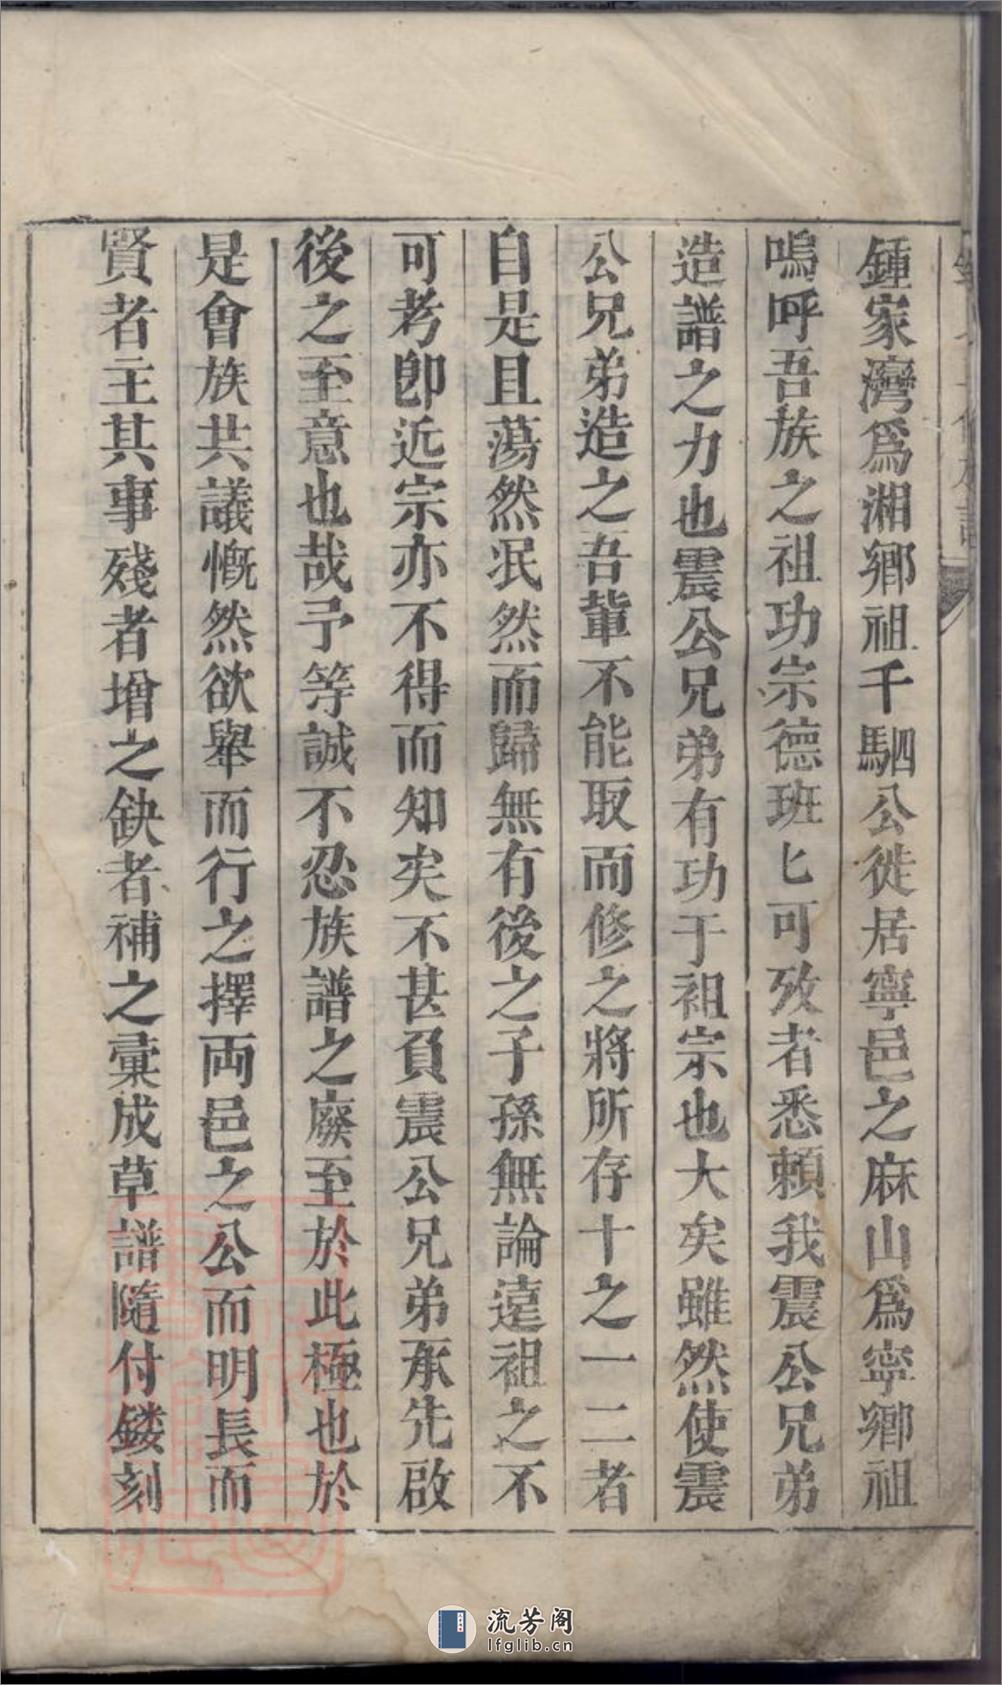 鍾家灣爲湘鄉祖千駟公徙居寧邑之麻山爲寧鄉祖
嗚呼吾族之祖功宗德班匕可攷者悉頼我震公兄弟
造譜之力也震公兄弟有功于祖宗也大矣雖然使震
公兄弟造之吾輩不能取而修之將所存十之一二者
自是且蕩然泯然而歸無有後之子孫無論遠祖之不
可考卽近宗亦不得而知矣不甚負震公兄弟承先啟
後之至意也哉予等誠不忍族譜之廢至於此極也於
是會族共議慨然欲舉而行之擇両邑之公而明長而
賢者主其事殘者增之缺者補之彙成草譜隨付鏤刻
流芳阁
lfglib.cn